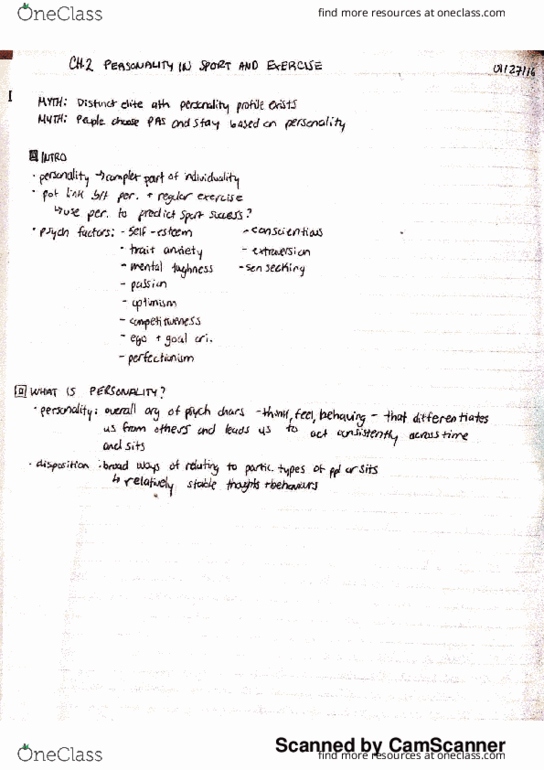 OneClass
find more resources at oneclass.com
CH.2 PERSONALITY IN SPORT AND EXERCISE
01/27/16
MYTH: Distinct elite ath personality profile exists
MYTH: People choose PAs and stay based on personality
INTRO
· personality → complex part of individuality
· pot link b/t per. + regular exercise
↳ use per. to predict sport success?
· Psych factors: - self-esteem - conscientious
· trait anxiety - extraversion
- mental toughness - sen seeking
- passion
- optimism
- competitiveness
- ego + goal ori.
- perfectionism
WHAT IS PERSONALITY?
· personality: overall org of psych chars - think, feel, behaving - that differentiates
us from others and leads us to act consistently across time
and sits
· disposition: broad ways of relating to partic. types of ppl or sits
↳ relatively stable thoughts + behaviours
Scanned by CamScanner
OneClass
find more resources at oneclass.com